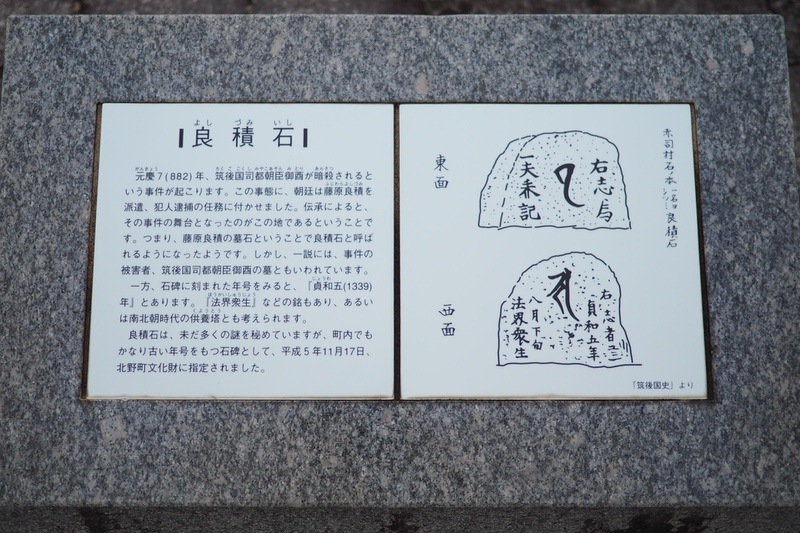 よし づみ いし
良積石
がんぎょう ちくごこくしみやこあそんみとり あんさつ
元慶7(882)年、筑後国司都朝臣御酉が暗殺されると
ふじわらよしづみ
いう事件が起こります。この事態に、朝廷は藤原良積を
派遣、犯人逮捕の任務に付かせました。伝承によると、
その事件の舞台となったのがこの地であるということで
す。つまり、藤原良積の墓石ということで良積石と呼ば
れるようになったようです。しかし、一説には、事件の
被害者、筑後国司都朝臣御酉の墓ともいわれています。
じょうわ
一方、石碑に刻まれた年号をみると、『貞和五(1339)
ほうかいしゅうじょう
年』とあります。『法界衆生』などの銘もあり、あるい
くようとう
は南北朝時代の供養塔とも考えられます。
良積石は、未だ多くの謎を秘めていますが、町内でも
かなり古い年号をもつ石碑として、平成5年11月17日、
北野町文化財に指定されました。
良積石
東面
右志
西面
右志者
貞和五年
八月下旬
法界衆生
『筑後国史』より